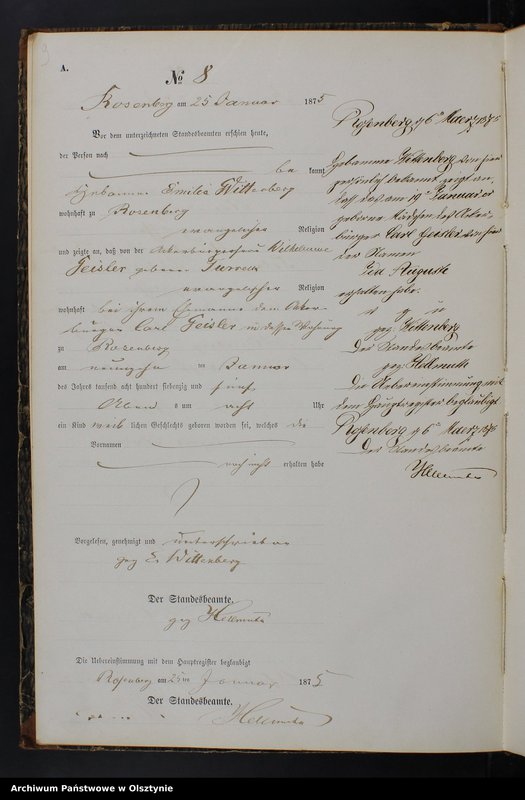 A.
No 8
Rosenberg am 25 Januar 1875
Vor dem unterzeichneten Standesbeamten erschien heute,
der Person nach
be kannt,
Hebamme Emilie Wittenberg
wohnhaft zu Rosenberg
evangelischer Religion
und zeigte an, daß von der Ackerbürgerfrau Wilhelmine
Geisler geborene
evangelischer Religion
wohnhaft bei ihrem Ehemanne dem Acker-
bürger Carl Geisler in dessen Wohnung
zu Rosenberg
am neunzehn ten Januar
des Jahres tausend acht hundert siebenzig und fünf
Abend s um acht Uhr
ein Kind weib lichen Geschlechts geboren worden sei, welches die
Vornamen
noch nicht erhalten habe
Vorgelesen, genehmigt und unterschrieben
gez E. Wittenberg
Der Standesbeamte.
gez Hellmuth
Die Uebereinstimmung mit dem Hauptregister beglaubigt
Rosenberg am 25ten Januar 1875
Der Standesbeamte.
Hellmuth
Rosenberg, d 6 Maerz 1875
Hebamme Wittenberg von hier
persönlich bekannt zeigt an,
daß das am 19 Januar cr
geborne Mädchen des Acker-
bürger Carl Geisler von hier
den Namen
Auguste
erhalten habe.
v g u
gez. Wittenberg
Der Standesbeamte
gez Hellmuth
Die Uebereinstimmung mit
dem Hauptregister beglaubigt
Rosenberg d 6 Maerz 1875
Der Standesbeamte
Hellmuth
Archiwum Państwowe w Olsztynie